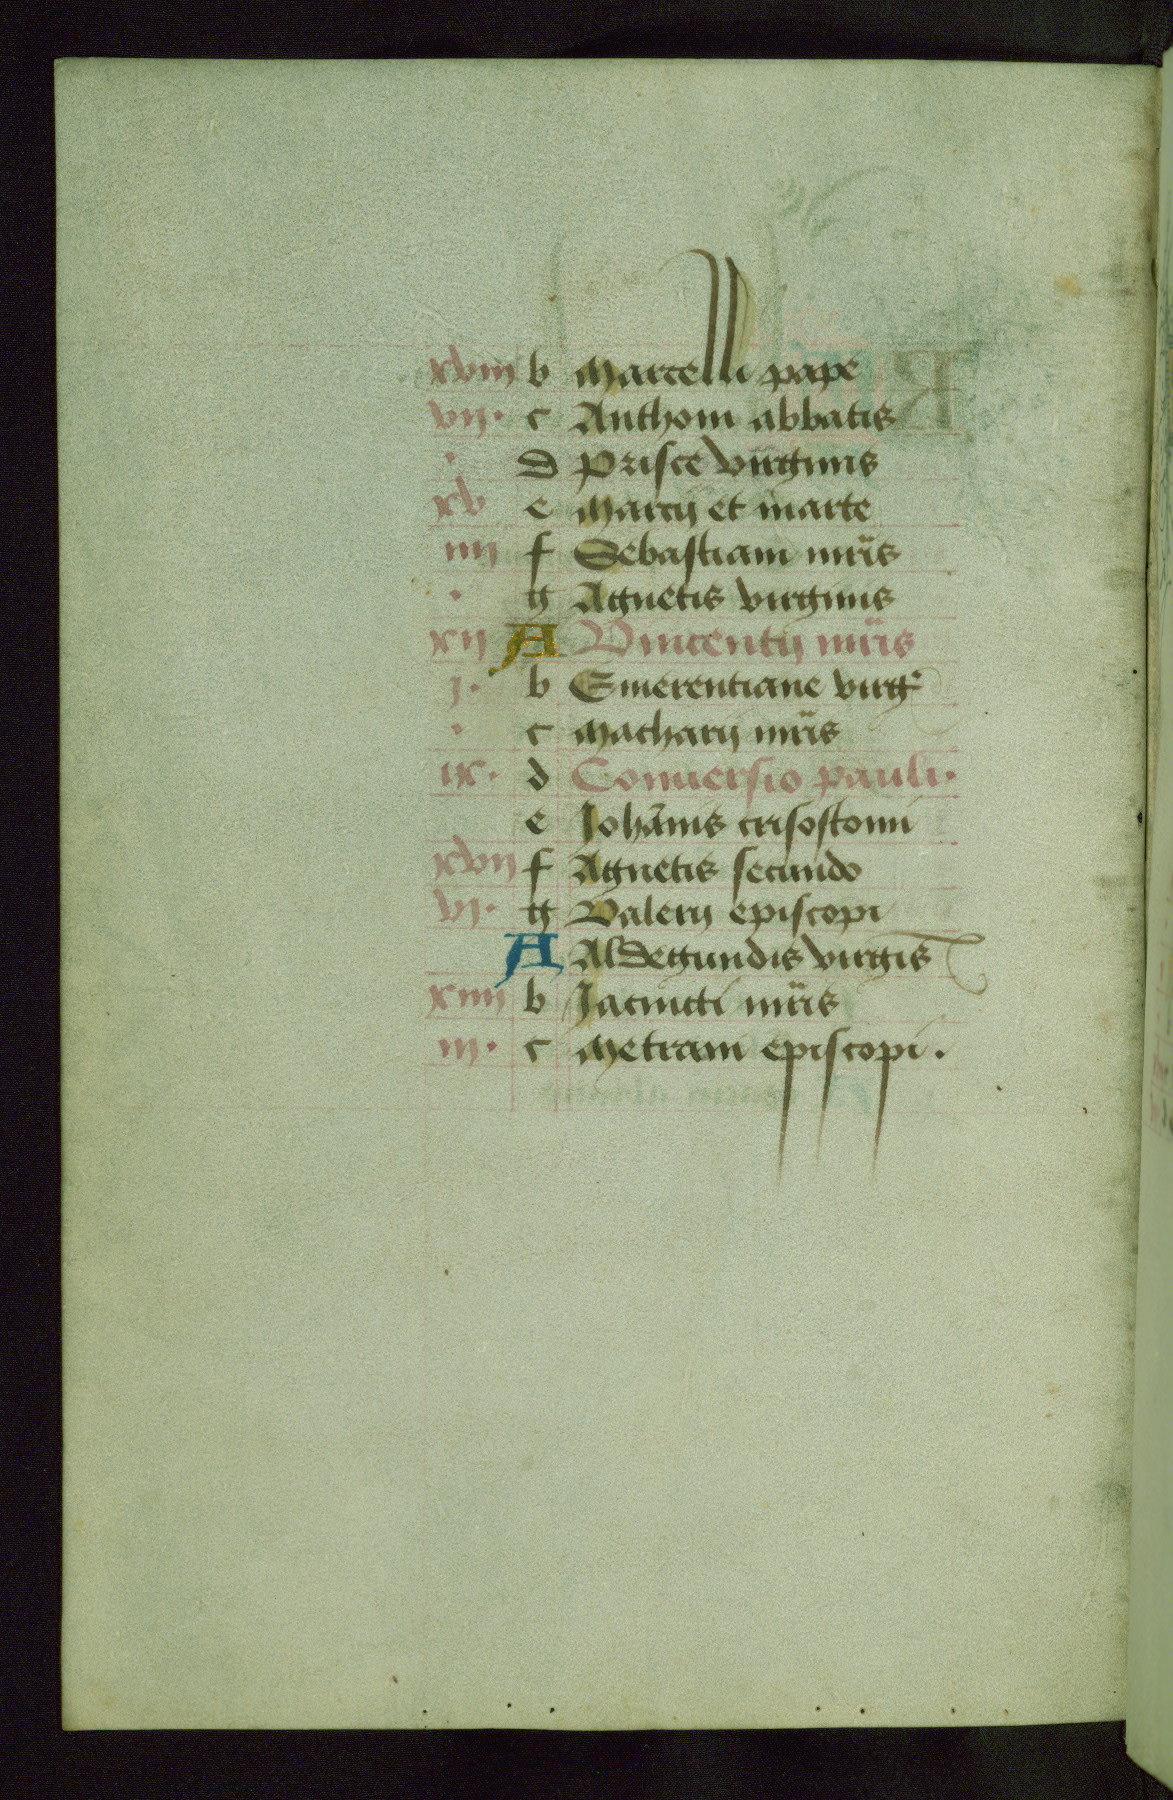 xviii b Marcelli pape
vii. c Anthonii abbatis
. d Prisce virginis
xv e Marcij et marte
iiij f Sebastiani mr̃is
. g Agnetis virginis
xij A Vincentij mr̃is
j. b Emerentiane virg
. c Macharij mr̃is
ix. d Conuersio pauli.
e Joha͂nis crisostomi
xvij f Agnetis secundo
vj. g Valerij episcopi
A Aldegundis virgis̅
xiiij b Jacincti mr̃is
iij. c Metrani episcopi.